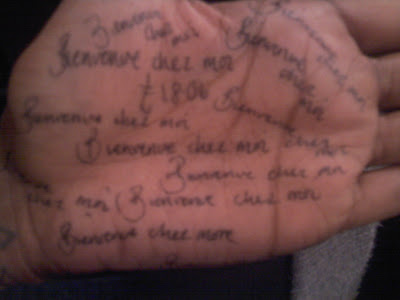 Bienvenue
chez moi
Bienvenue chez moi
Bienvenue chez moi
Bienvenue chez moi
£18.00
Bienvenue chez moi
Bienvenue chez moi
Bienvenue chez moi
Bienvenue chez moi
chez moi
Bienvenue chez moi
Bienvenue chez more